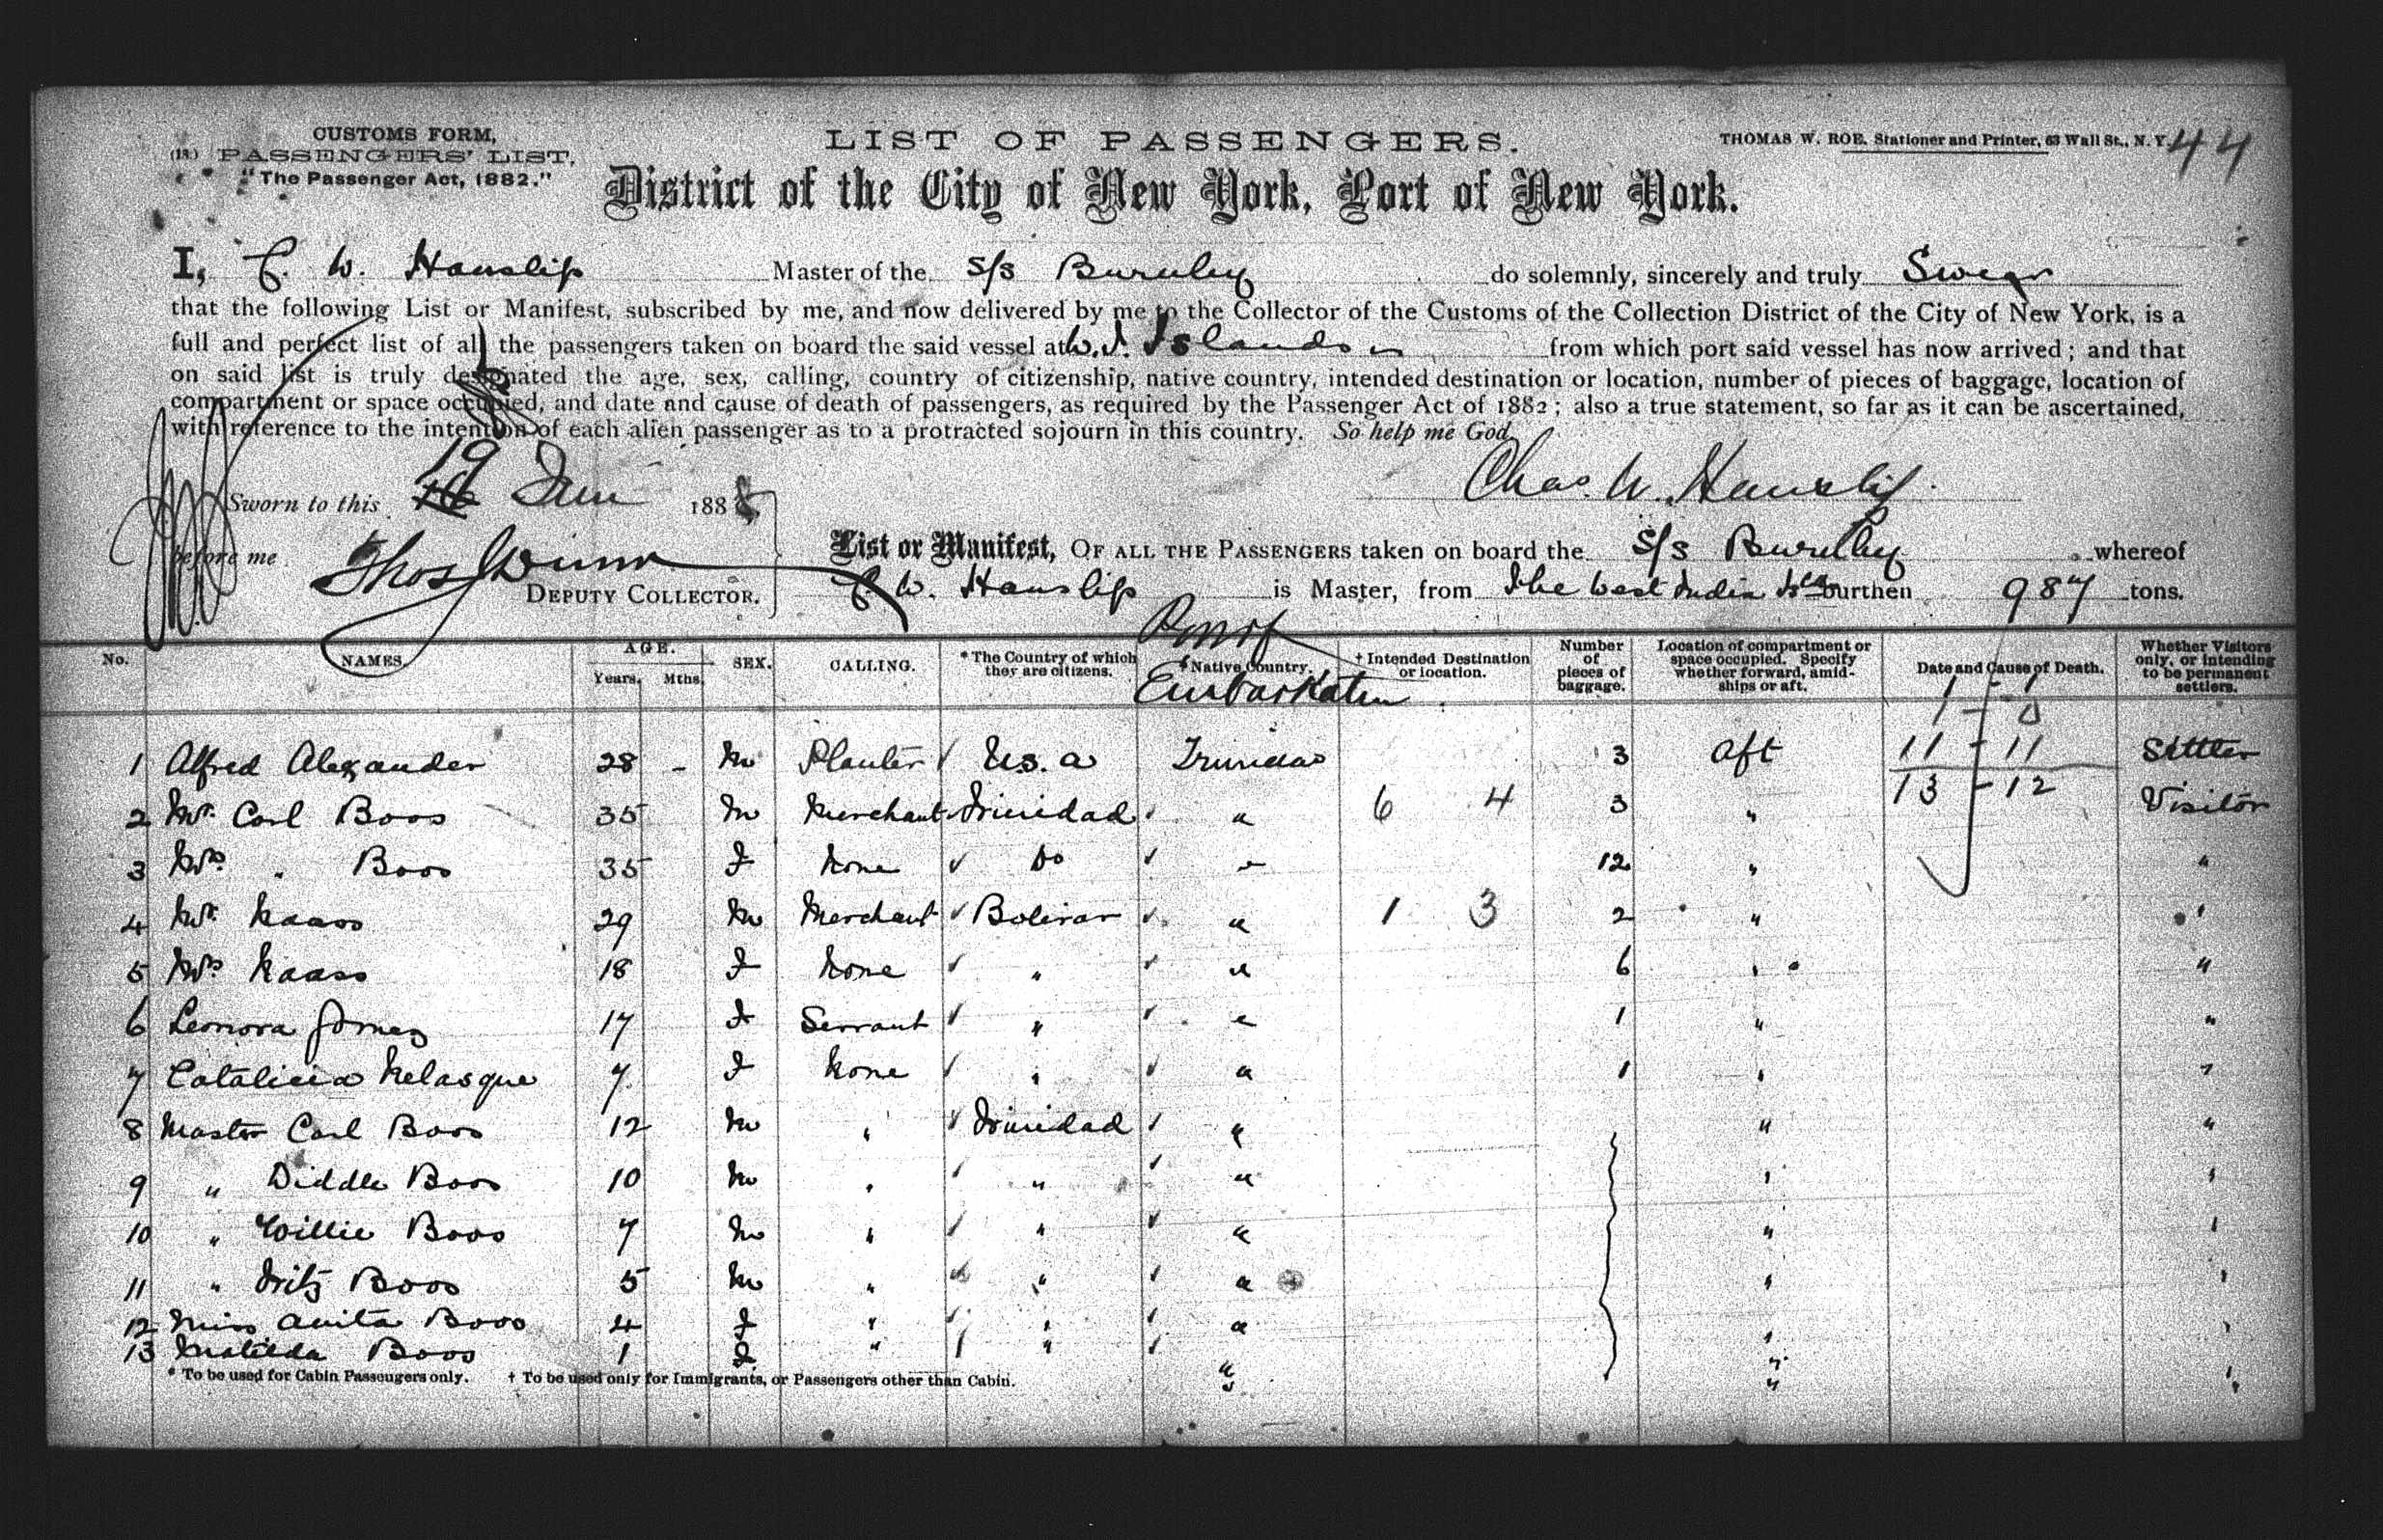 CUSTOMS FORM,
(18.) PASSENGERS' LIST.
"The Passenger Act, 1882."
LIST OF PASSENGERS.
THOMAS W. ROE, Stationer and Printer, 63 Wall St., N. Y.
44
District of the City of New York, Port of New York.
I, C. W. Hanslip Master of the S/S Burnley do solemnly, sincerely and truly Swear
that the following List or Manifest, subscribed by me, and now delivered by me to the Collector of the Customs of the Collection District of the City of New York, is a
full and perfect list of all the passengers taken on board the said vessel at W. I. Islands from which port said vessel has now arrived; and that
on said list is truly designated the age, sex, calling, country of citizenship, native country, intended destination or location, number of pieces of baggage, location of
compartment or space occupied, and date and cause of death of passengers, as required by the Passenger Act of 1882; also a true statement, so far as it can be ascertained,
with reference to the intention of each alien passenger as to a protracted sojourn in this country. So help me God
Chas. W. Hanslip.
Sworn to this 19 June 1888
before me Thos Dunn
DEPUTY COLLECTOR.
List or Manifest, OF ALL THE PASSENGERS taken on board the S/S Burnley whereof
C. W. Hanslip is Master, from The West India Isds burthen 987 tons.
No. NAMES. AGE. Years. Mths. SEX. CALLING. * The Country of which they are citizens. * Native Country. † Intended Destination or location. Number of pieces of baggage. Location of compartment or space occupied. Specify whether forward, amidships or aft. Date and Cause of Death. Whether Visitors only, or intending to be permanent settlers.
Port of Embarkation
1 - 1
1 - 0
11 - 11
13 - 12
1 Alfred Alexander 28 - M Planter U.S.a Trinidad 3 Aft Settler
2 Mr. Carl Boos 35 M Merchant Trinidad " 6 4 3 " Visitor
3 Mrs " Boos 35 F None Do " 12 " "
4 Mr. Kaass 29 M Merchant Bolivar " 1 3 2 " "
5 Mrs Kaass 18 F None " " 6 " "
6 Leonora Gomez 17 F Servant " " 1 " "
7 Velasque 7 F None " " 1 " "
8 Master Carl Boos 12 M " Trinidad " " "
9 " Diddle Boos 10 M " " " " "
10 " Willie Boos 7 M " " " " "
11 " Fritz Boos 5 M " " " " "
12 Miss Anita Boos 4 F " " " " "
13 Matilda Boos 1 F " " " " "
* To be used for Cabin Passengers only. † To be used only for Immigrants, or Passengers other than Cabin.